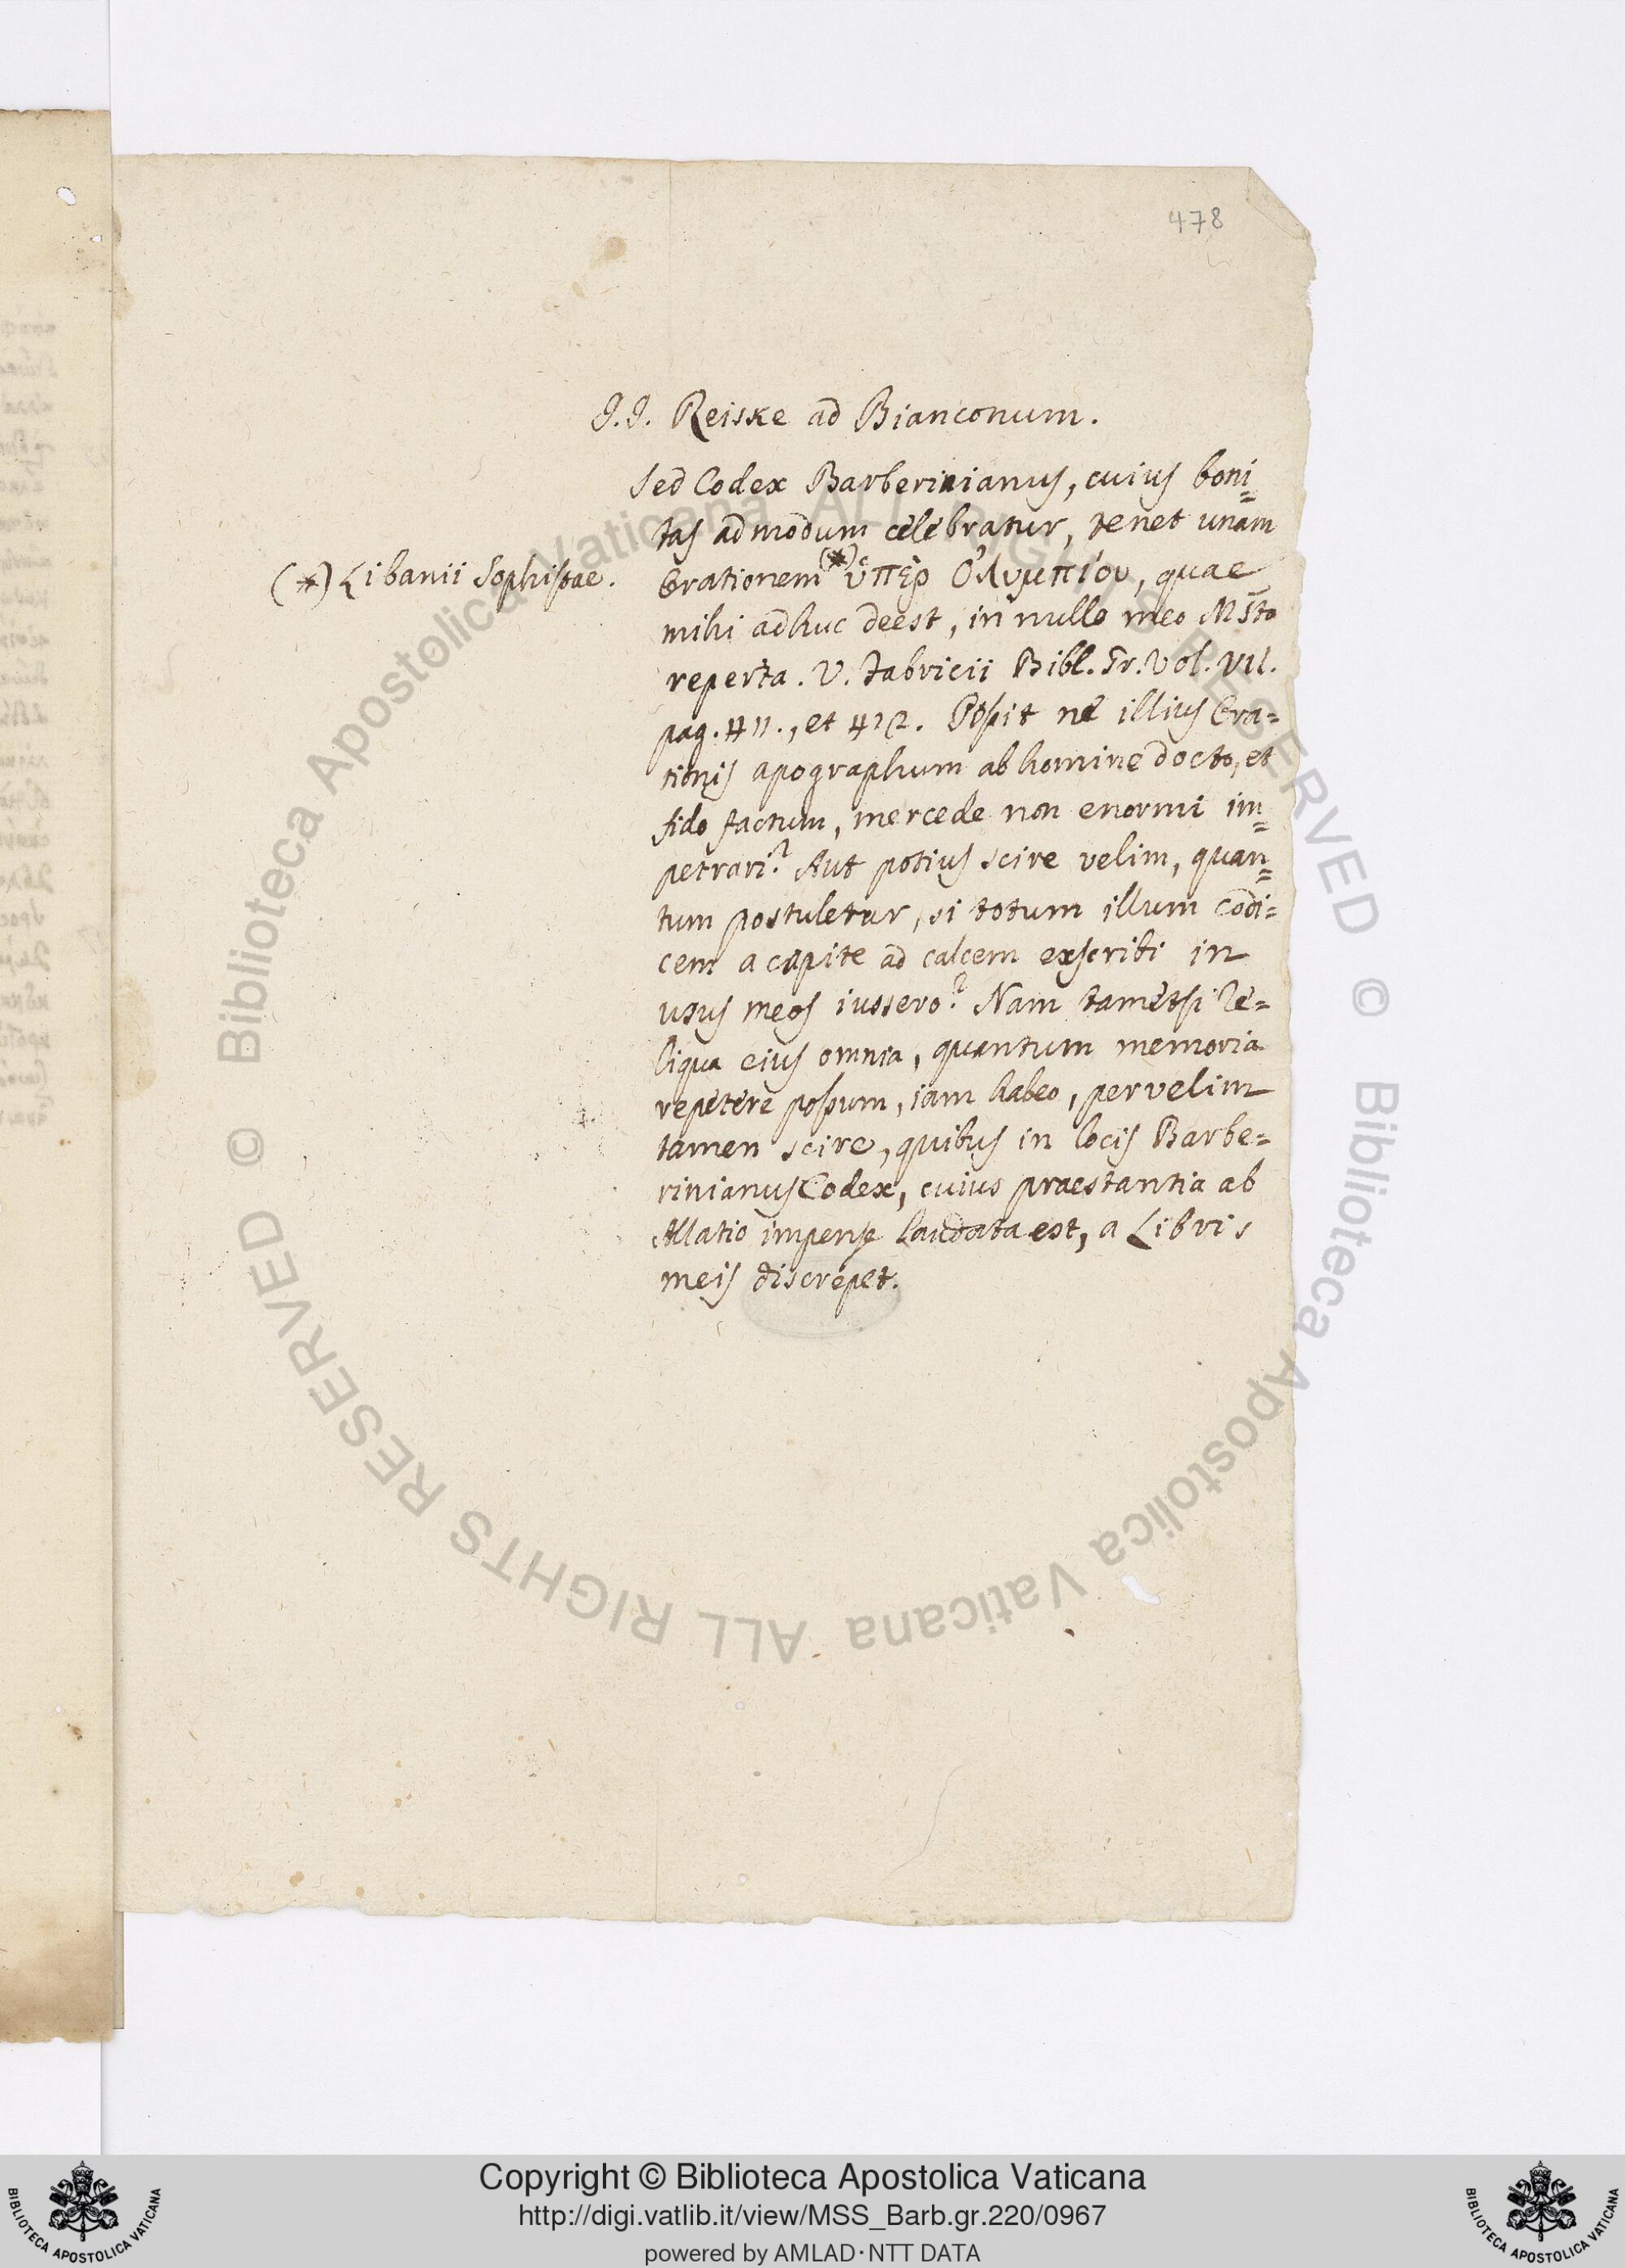 478
J.J. Reiske ad Bianconum.
Sed Codex Barberinianus, cuius boni=
tas admodum celebratur, tenet unam
(*) Libanii Sophistae.
Orationem (*) ὑπὲρ Ὀλυμπίου, quae
mihi adhuc deest, in nullo meo MSto
reperta. V. Fabricii Bibl. Gr. Vol. VII.
pag. 411., et 412. Possit ne illius Ora=
tionis apographum ab homine docto, et
fido factum, mercede non enormi im=
petrari? Aut potius scire velim, quan=
tum postuletur, si totum illum Codi=
cem a capite ad calcem exscribi in
usus meos iussero? Nam tametsi re=
liqua eius omnia, quantum memoria
repetere possum, iam habeo, pervelim
tamen scire, quibus in locis Barbe=
rinianus Codex, cuius praestantia ab
Allatio impense laudata est, a Libris
meis discrepet.
© Biblioteca Apostolica Vaticana ALL RIGHTS RESERVED © Biblioteca Apostolica Vaticana ALL RIGHTS RESERVED
Copyright © Biblioteca Apostolica Vaticana
http://digi.vatlib.it/view/MSS_Barb.gr.220/0967
powered by AMLAD·NTT DATA
BIBLIOTECA APOSTOLICA VATICANA
BIBLIOTECA APOSTOLICA VATICANA